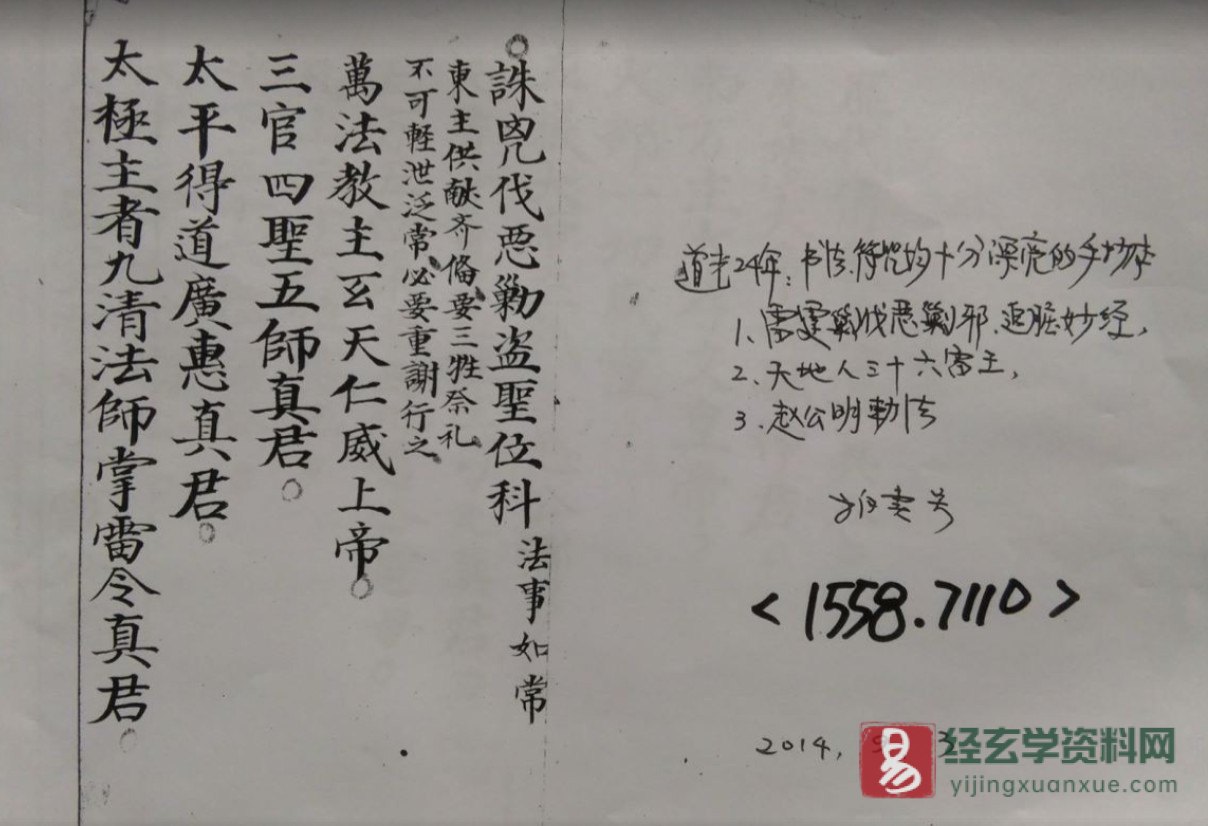 誅凶伐惡勦盜聖位科 法事如常
東主供献齐俻要三牲祭礼
不可軽泄泛常必要重謝行之
萬法教主玄天仁威上帝
三官四聖五師真君
太平得道廣惠真君
太極主者九清法師掌雷令真君
道光24年：书法、符咒均十分漂亮的手抄本
1、雷霆 伐惡勦邪、追 妙经，
2、天地人三十六雷王，
3、赵公明勅法
拍卖号
<1558.7110>
2014，
经玄学资料网
yijingxuanxue.com
易